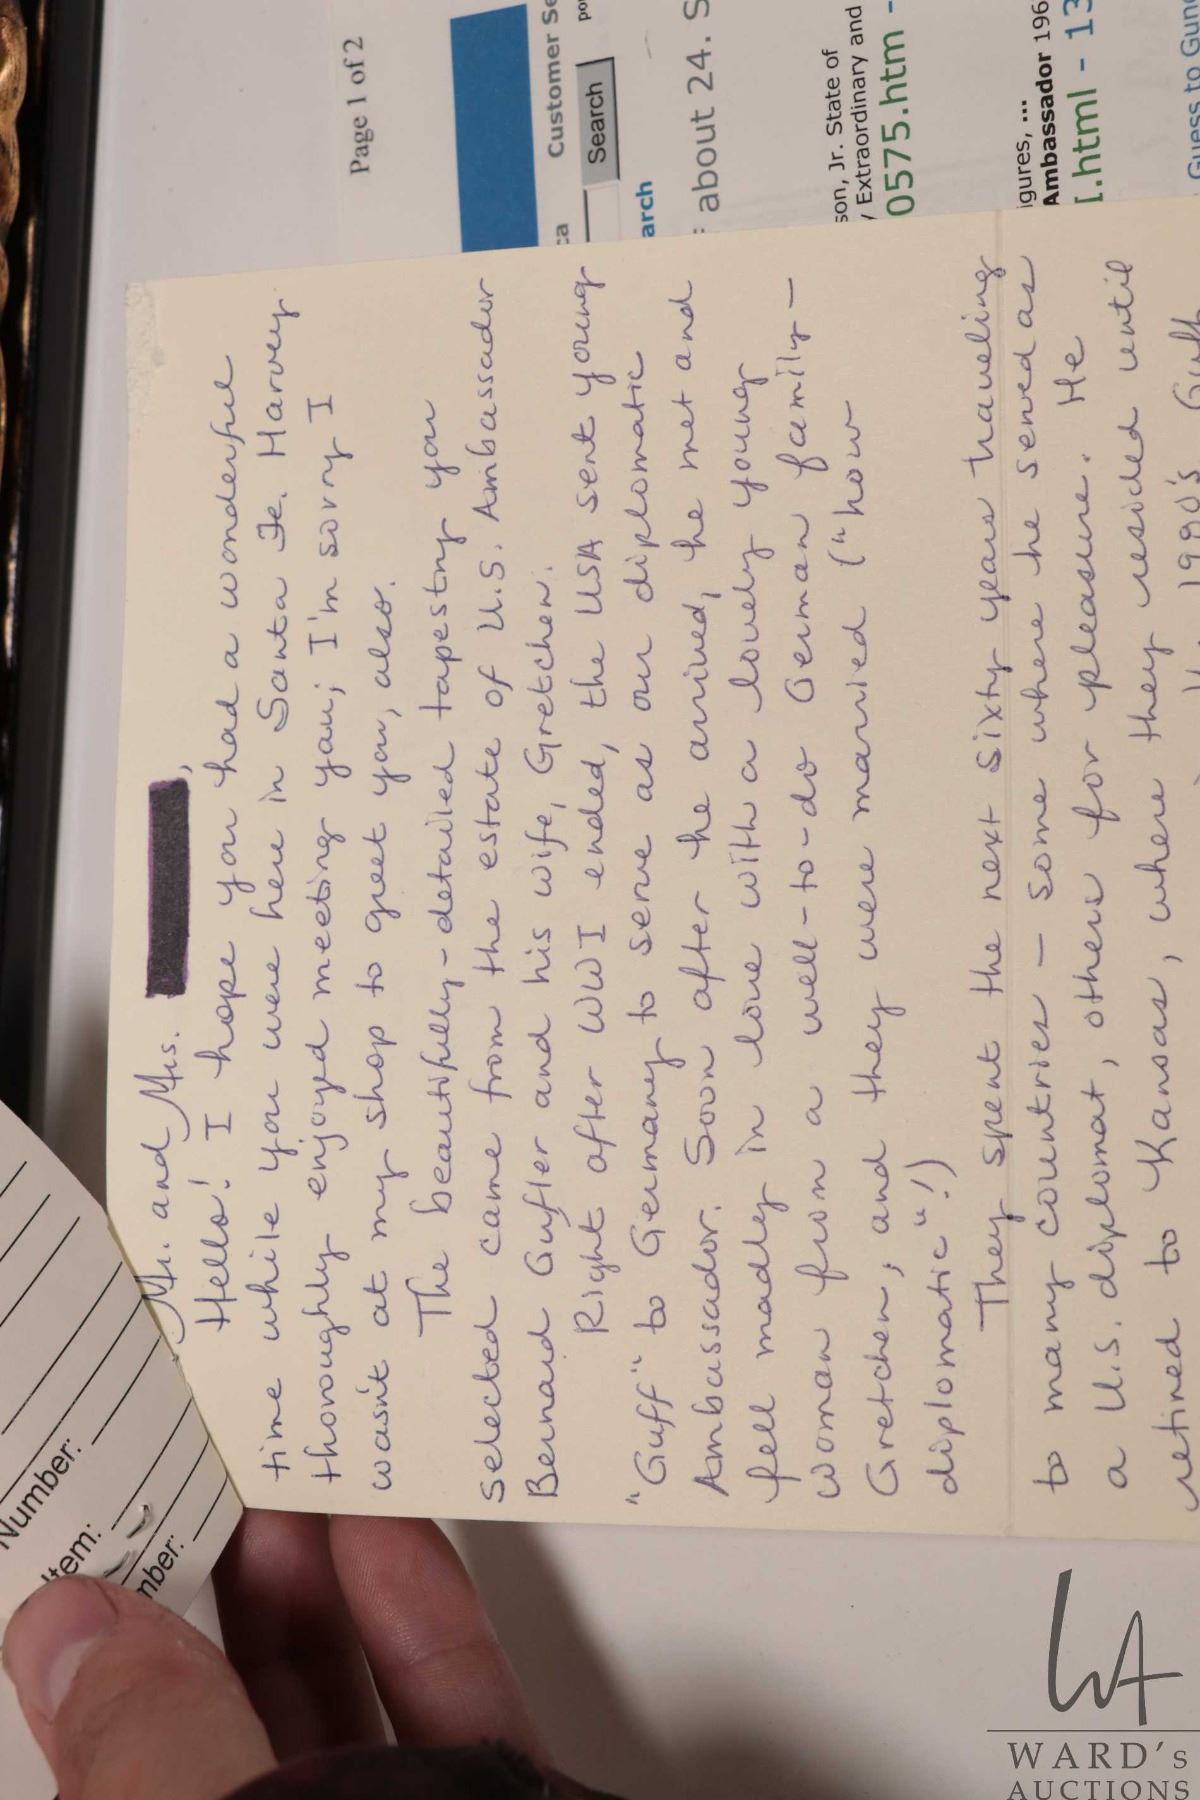 Mr. and Mrs.
Hello! I hope you had a wonderful
time while you were here in Santa Fe. Harvey
thoroughly enjoyed meeting you; I'm sorry I
wasn't at my shop to greet you, also.
The beautifully-detailed tapestry you
selected came from the estate of U.S. Ambassador
Bernard Gufler and his wife, Gretchen.
Right after WWI ended, the USA sent young
"Guff" to Germany to serve as our diplomatic
Ambassador. Soon after he arrived, he met and
fell madly in love with a lovely young
woman from a well-to-do German family—
Gretchen, and they were married ("how
diplomatic"!)
They spent the next sixty years traveling
to many countries — some where he served as
a U.S. diplomat, others for pleasure. He
retired to Kansas, where they resided until
1990's Guff
Page 1 of 2
Customer Se
ca
Search
po
arch
about 24. S
son, Jr. State of
y Extraordinary and
0575.htm -
igures, ...
Ambassador 196
[.html - 13
Guess to Gund
Number:
Item:
mber:
WA
WARD's
AUCTIONS